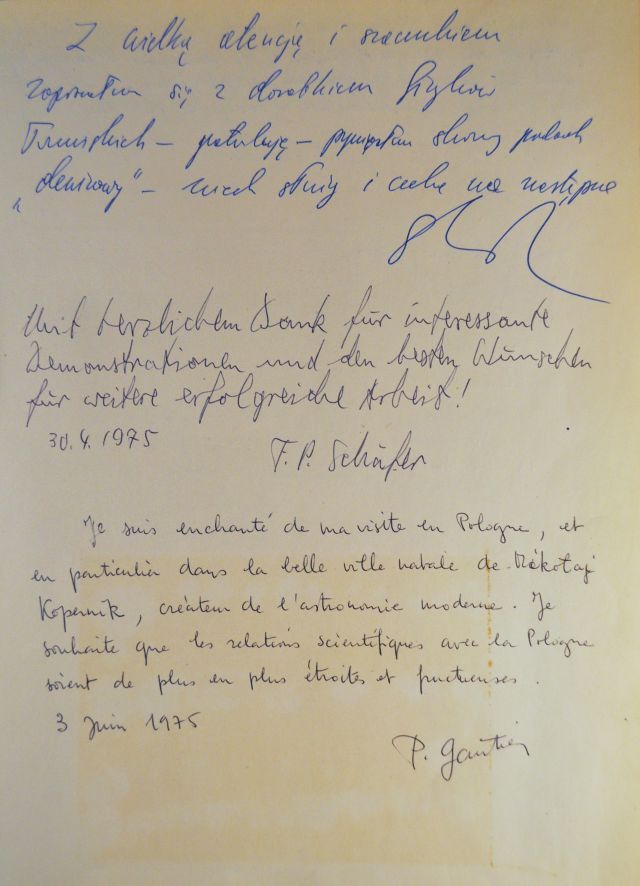 Z wielką atencją i szacunkiem
się z dorobkiem fizyków
Toruńskich – gratuluję –
– niech służy i cieszy na następne
Mit herzlichem Dank für interessante
Demonstrationen und den besten Wünschen
für weitere erfolgreiche Arbeit!
30.4.1975
F.P. Schäfer
Je suis enchanté de ma visite en Pologne, et
en particulier dans la belle ville natale de Mikołaj
Kopernik, créateur de l'astronomie moderne. Je
souhaite que les relations scientifiques avec la Pologne
soient de plus en plus étroites et fructueuses.
3 Juin 1975
P. Gautier